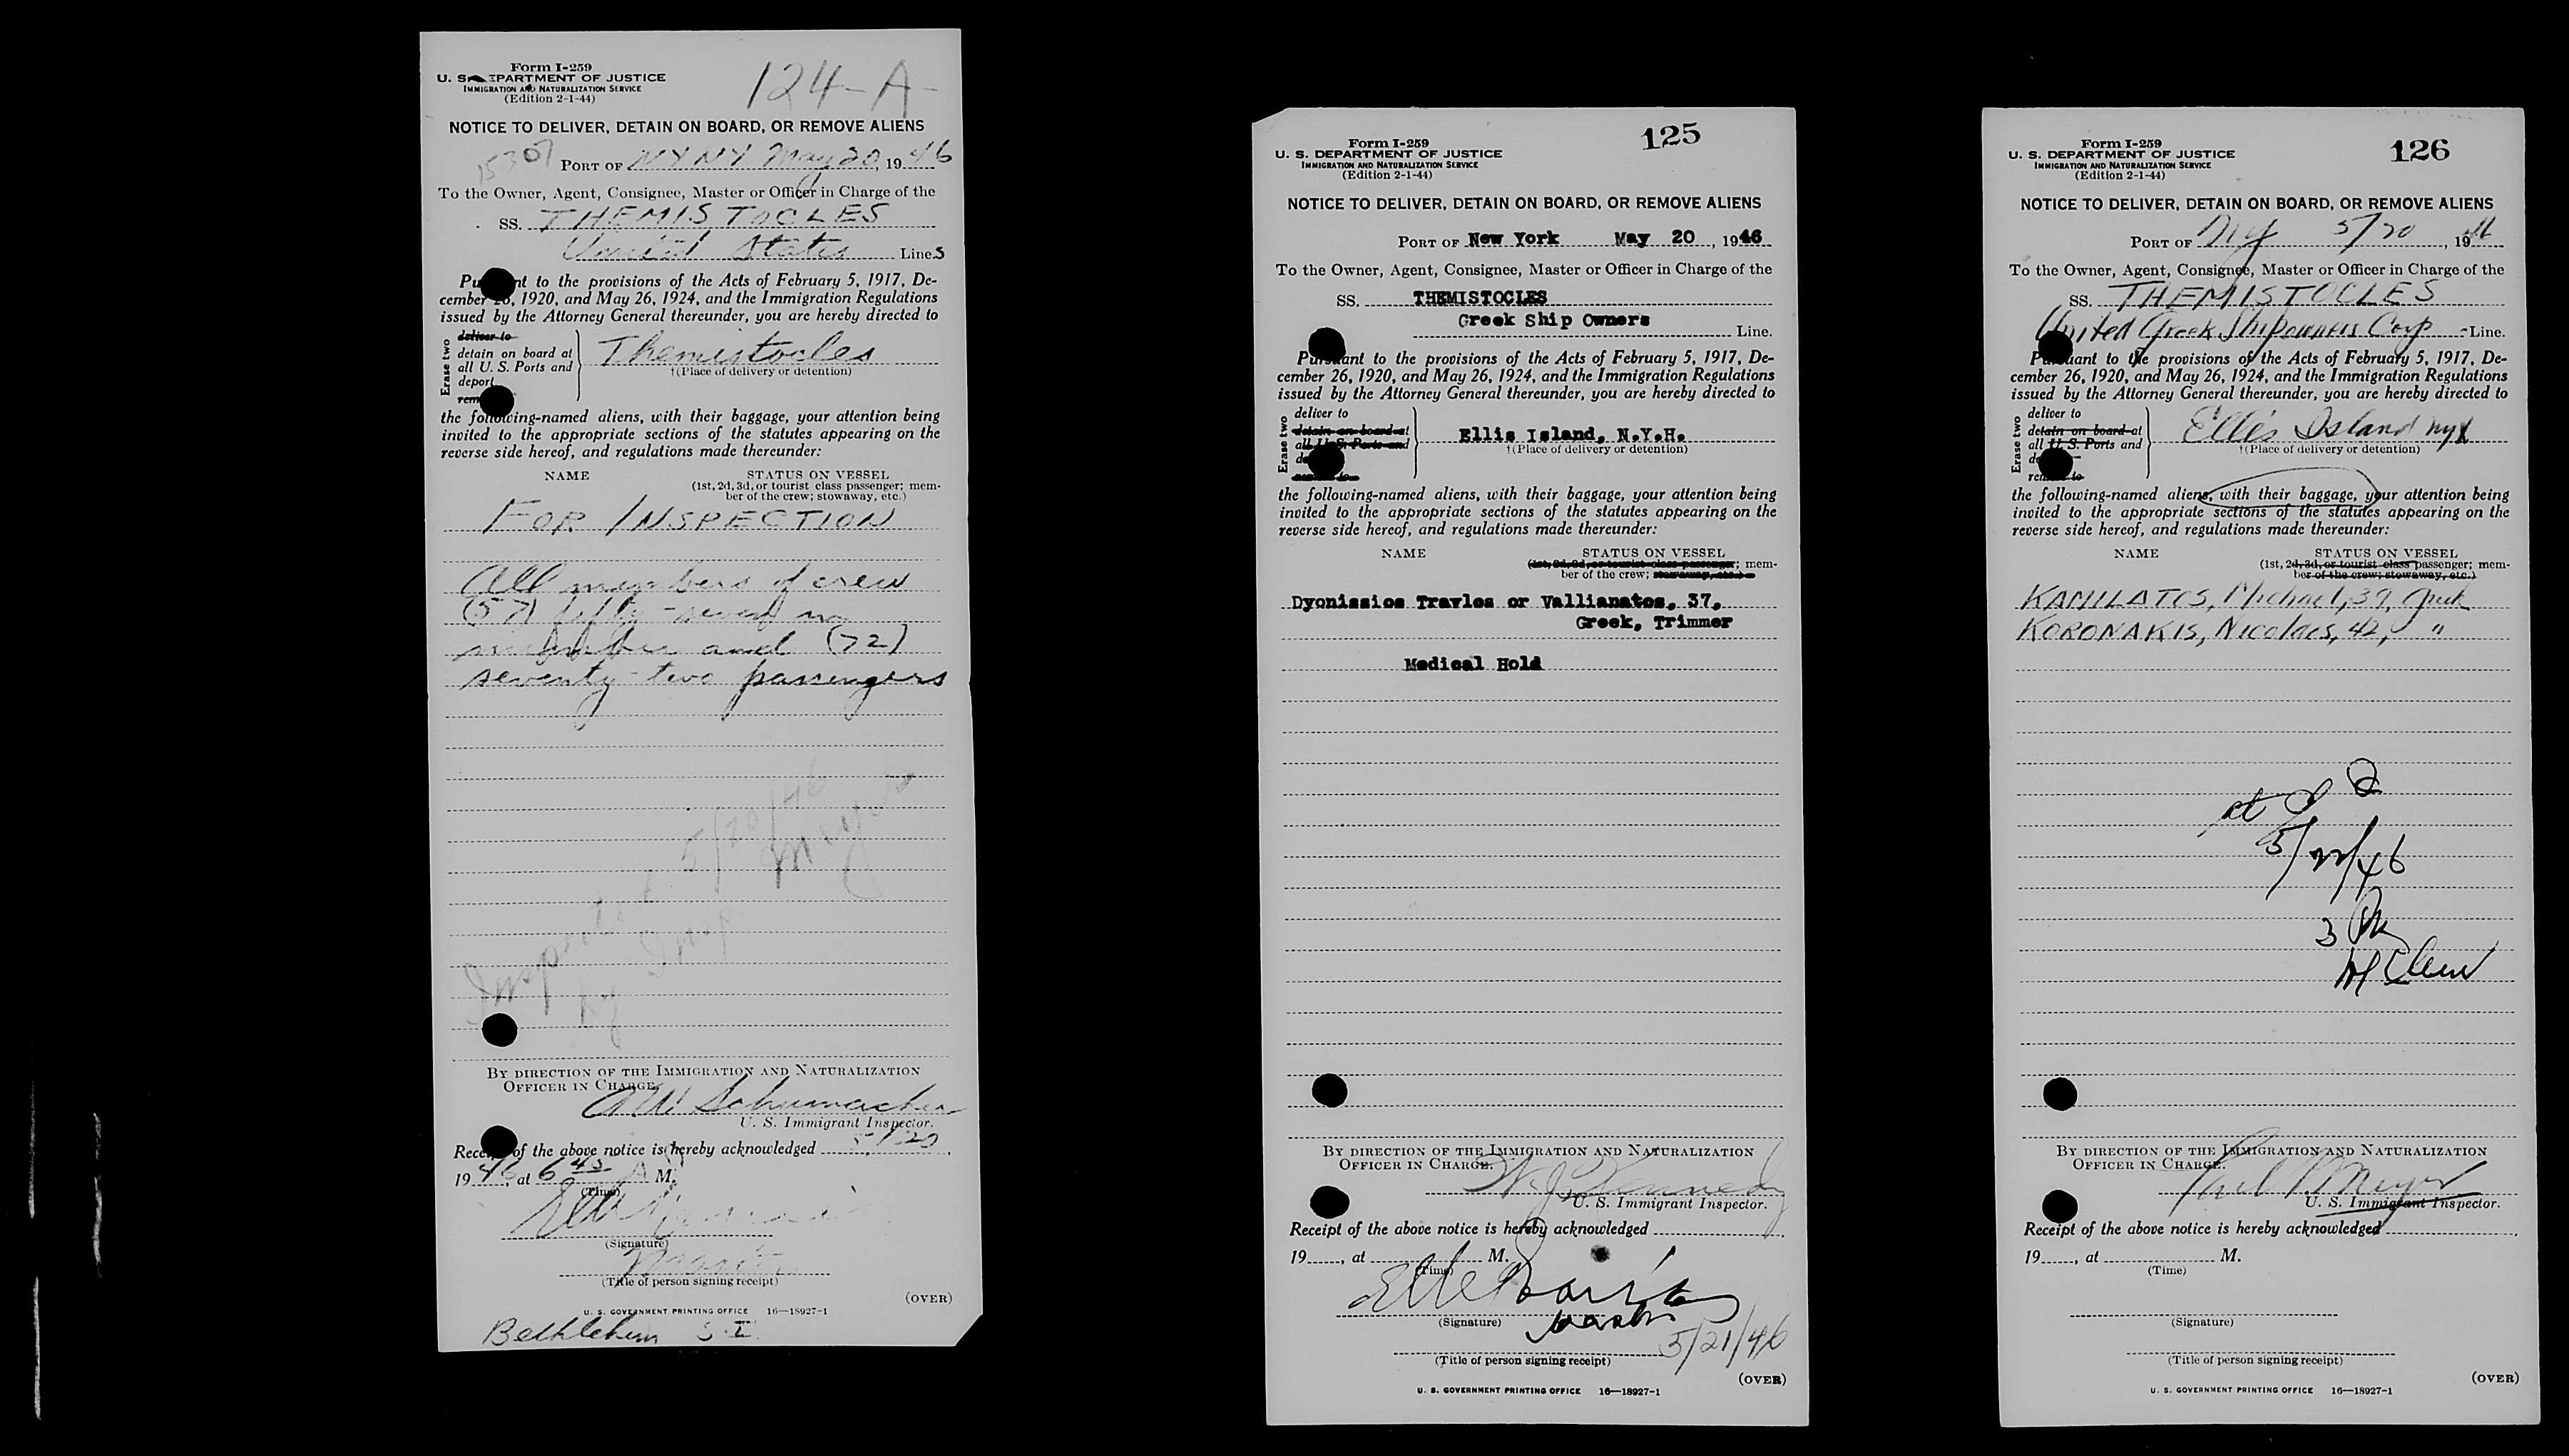 Form I-259
U. S. DEPARTMENT OF JUSTICE
IMMIGRATION AND NATURALIZATION SERVICE
(Edition 2-1-44)
124-A-
NOTICE TO DELIVER, DETAIN ON BOARD, OR REMOVE ALIENS
15307
PORT OF NY NY May 20, 1946
To the Owner, Agent, Consignee, Master or Officer in Charge of the
SS. THEMISTOCLES
United States Lines
Pursuant to the provisions of the Acts of February 5, 1917, De-
cember 26, 1920, and May 26, 1924, and the Immigration Regulations
issued by the Attorney General thereunder, you are hereby directed to
Erase two
deliver to
detain on board at
all U. S. Ports and
deport
Themistocles
†(Place of delivery or detention)
the following-named aliens, with their baggage, your attention being
invited to the appropriate sections of the statutes appearing on the
reverse side hereof, and regulations made thereunder:
NAME STATUS ON VESSEL
(1st, 2d, 3d, or tourist class passenger; mem-
ber of the crew; stowaway, etc.)
FOR INSPECTION
All members of crew
(57) fifty-seven in
number and (72)
seventy-two passengers
Inspected 5/20/46
by Insp
BY DIRECTION OF THE IMMIGRATION AND NATURALIZATION
OFFICER IN CHARGE.
A.W. Schumacher
U. S. Immigrant Inspector.
Receipt of the above notice is hereby acknowledged 5/20,
1946, at 6 45 A M.
(Time)
(Signature)
Master
(Title of person signing receipt)
(OVER)
U. S. GOVERNMENT PRINTING OFFICE 16—18927-1
Bethlehem S. I.
Form I-259
U. S. DEPARTMENT OF JUSTICE
IMMIGRATION AND NATURALIZATION SERVICE
(Edition 2-1-44)
125
NOTICE TO DELIVER, DETAIN ON BOARD, OR REMOVE ALIENS
PORT OF New York May 20, 1946
To the Owner, Agent, Consignee, Master or Officer in Charge of the
SS. THEMISTOCLES
Greek Ship Owners Line.
Pursuant to the provisions of the Acts of February 5, 1917, De-
cember 26, 1920, and May 26, 1924, and the Immigration Regulations
issued by the Attorney General thereunder, you are hereby directed to
Erase two
deliver to
detain on board at
all U. S. Ports and
Ellis Island, N.Y.H.
†(Place of delivery or detention)
the following-named aliens, with their baggage, your attention being
invited to the appropriate sections of the statutes appearing on the
reverse side hereof, and regulations made thereunder:
NAME STATUS ON VESSEL
(1st, 2d, 3d, or tourist class passenger; mem-
ber of the crew; stowaway, etc.)
Dyonissios Travlos or Vallianatos, 37,
Greek, Trimmer
Medical Hold
BY DIRECTION OF THE IMMIGRATION AND NATURALIZATION
OFFICER IN CHARGE.
W. J. Kennedy
U. S. Immigrant Inspector.
Receipt of the above notice is hereby acknowledged
19 , at M.
(Time)
(Signature)
master
5/21/46
(Title of person signing receipt)
(OVER)
U. S. GOVERNMENT PRINTING OFFICE 16—18927-1
Form I-259
U. S. DEPARTMENT OF JUSTICE
IMMIGRATION AND NATURALIZATION SERVICE
(Edition 2-1-44)
126
NOTICE TO DELIVER, DETAIN ON BOARD, OR REMOVE ALIENS
PORT OF NY 5/20, 1946
To the Owner, Agent, Consignee, Master or Officer in Charge of the
SS. THEMISTOCLES
United Greek Shipowners Corp - Line.
Pursuant to the provisions of the Acts of February 5, 1917, De-
cember 26, 1920, and May 26, 1924, and the Immigration Regulations
issued by the Attorney General thereunder, you are hereby directed to
Erase two
deliver to
detain on board at
all U. S. Ports and
remove to
Ellis Island NYH
†(Place of delivery or detention)
the following-named aliens, with their baggage, your attention being
invited to the appropriate sections of the statutes appearing on the
reverse side hereof, and regulations made thereunder:
NAME STATUS ON VESSEL
(1st, 2d, 3d, or tourist class passenger; mem-
ber of the crew; stowaway, etc.)
KAMILATOS, Michael, 39, Greek
KORONAKIS, Nicolaos, 42, "
5/22/46
3 PM
BY DIRECTION OF THE IMMIGRATION AND NATURALIZATION
OFFICER IN CHARGE.
U. S. Immigrant Inspector.
Receipt of the above notice is hereby acknowledged
19 , at M.
(Time)
(Signature)
(Title of person signing receipt)
(OVER)
U. S. GOVERNMENT PRINTING OFFICE 16—18927-1